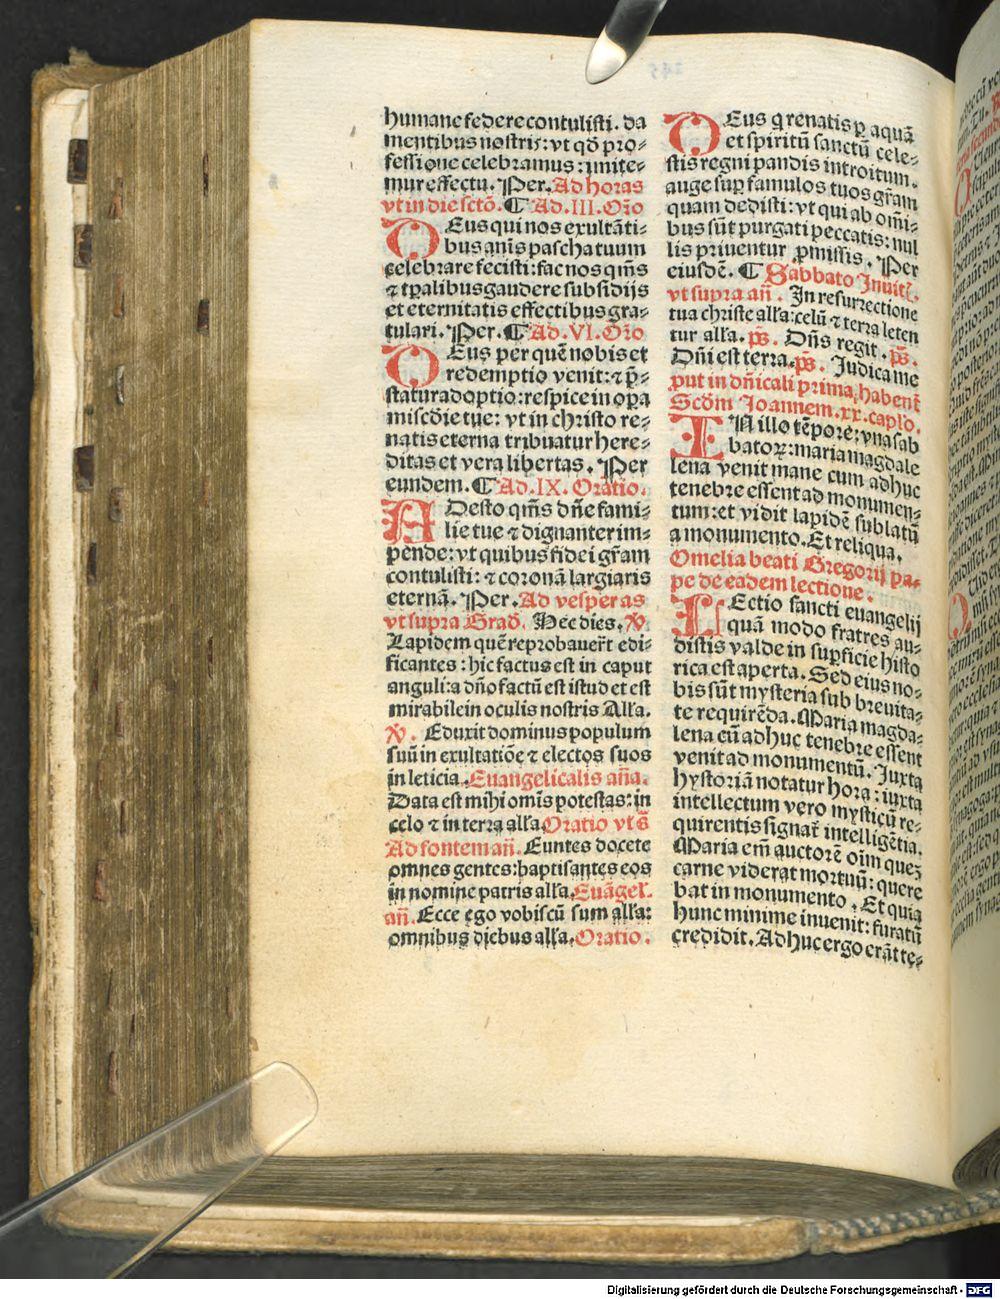 humane federe contulisti. da
mentibus nostris: vt qd̄ pro⸗
fessione celebramus: imite⸗
mur effectu. Per. Ad horas
vt in die sctō. ¶ Ad. III. Or̄o
DEus qui nos exultāti⸗
bus aīs pascha tuum
celebrare fecisti: fac nos qm̄s
⁊ tpalibus gaudere subsidijs
et eternitatis effectibus gra⸗
tulari. Per. ¶ Ad. VI. Or̄o
DEus per quē nobis et
redemptio venit: ⁊ p̄⸗
statur adoptio: respice in opa
miscd̄ie tue: vt in christo re⸗
natis eterna tribuatur here⸗
ditas et vera libertas. Per
eundem. ¶ Ad. IX. Oratio.
ADesto qm̄s dn̄e fami⸗
lie tue ⁊ dignanter im⸗
pende: vt quibus fidei gr̄am
contulisti: ⁊ coronā largiaris
eternā. Per. Ad vesperas
vt supra Grad̄. Hec dies. ℣.
Lapidem quē reprobauer̄t edi⸗
ficantes: hic factus est in caput
anguli: a dn̄o factū est istud et est
mirabile in oculis nostris Alla.
℣. Eduxit dominus populum
suū in exultatiōe ⁊ electos suos
in leticia. Euangelicalis an̄a.
Data est mihi om̄is potestas: in
celo ⁊ in terra alla Oratio vt s̄
Ad fontem an̄. Euntes docete
omnes gentes: baptisantes eos
in nomine patris alla. Euāgel.
an̄. Ecce ego vobiscū sum alla:
omnibus diebus alla. Oratio.
DEus q renatis ꝑ aquā
et spiritū sanctū cele⸗
stis regni pandis introitum.
auge sup famulos tuos gr̄am
quam dedisti: vt qui ab om̄i⸗
bus sūt purgati peccatis: nul
lis priuentur ꝓmissis. Per
eiusdē. ¶ Sabbato Inuit̄.
vt supra an̄. In resurrectione
tua christe alla: celū ⁊ terra leten
tur alla. ps. Dn̄s regit. ps.
Dn̄i est terra. ps. Iudica me
put in dn̄icali prima habent̄
Scdm̄ Ioannem. xx. caplo.
IN illo tēpore: vna sab
batoꝝ: maria magdale
lena venit mane cum adhuc
tenebre essent ad monumen⸗
tum: et vidit lapidē sublatū
a monumento. Et reliqua.
Omelia beati Gregorij pa⸗
pe de eadem lectione.
LEctio sancti euangelij
quā modo fratres au⸗
distis valde in supficie histo
rica est aperta. Sed eius no⸗
bis sūt mysteria sub breuita⸗
te requirēda. Maria magda⸗
lena cū adhuc tenebre essent
venit ad monumentū. Iuxta
hystoriā notatur hora: iuxta
intellectum vero mysticū re⸗
quirentis signat̄ intelligētia.
Maria em̄ auctorē oīm quez
carne viderat mortuū: quere
bat in monumento. Et quia
hunc minime inuenit: furatū
credidit. Adhuc ergo erāt te⸗
Digitalisierung gefördert durch die Deutsche Forschungsgemeinschaft - DFG